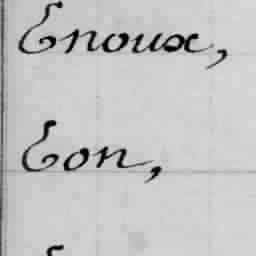 Enoux,
Eon,